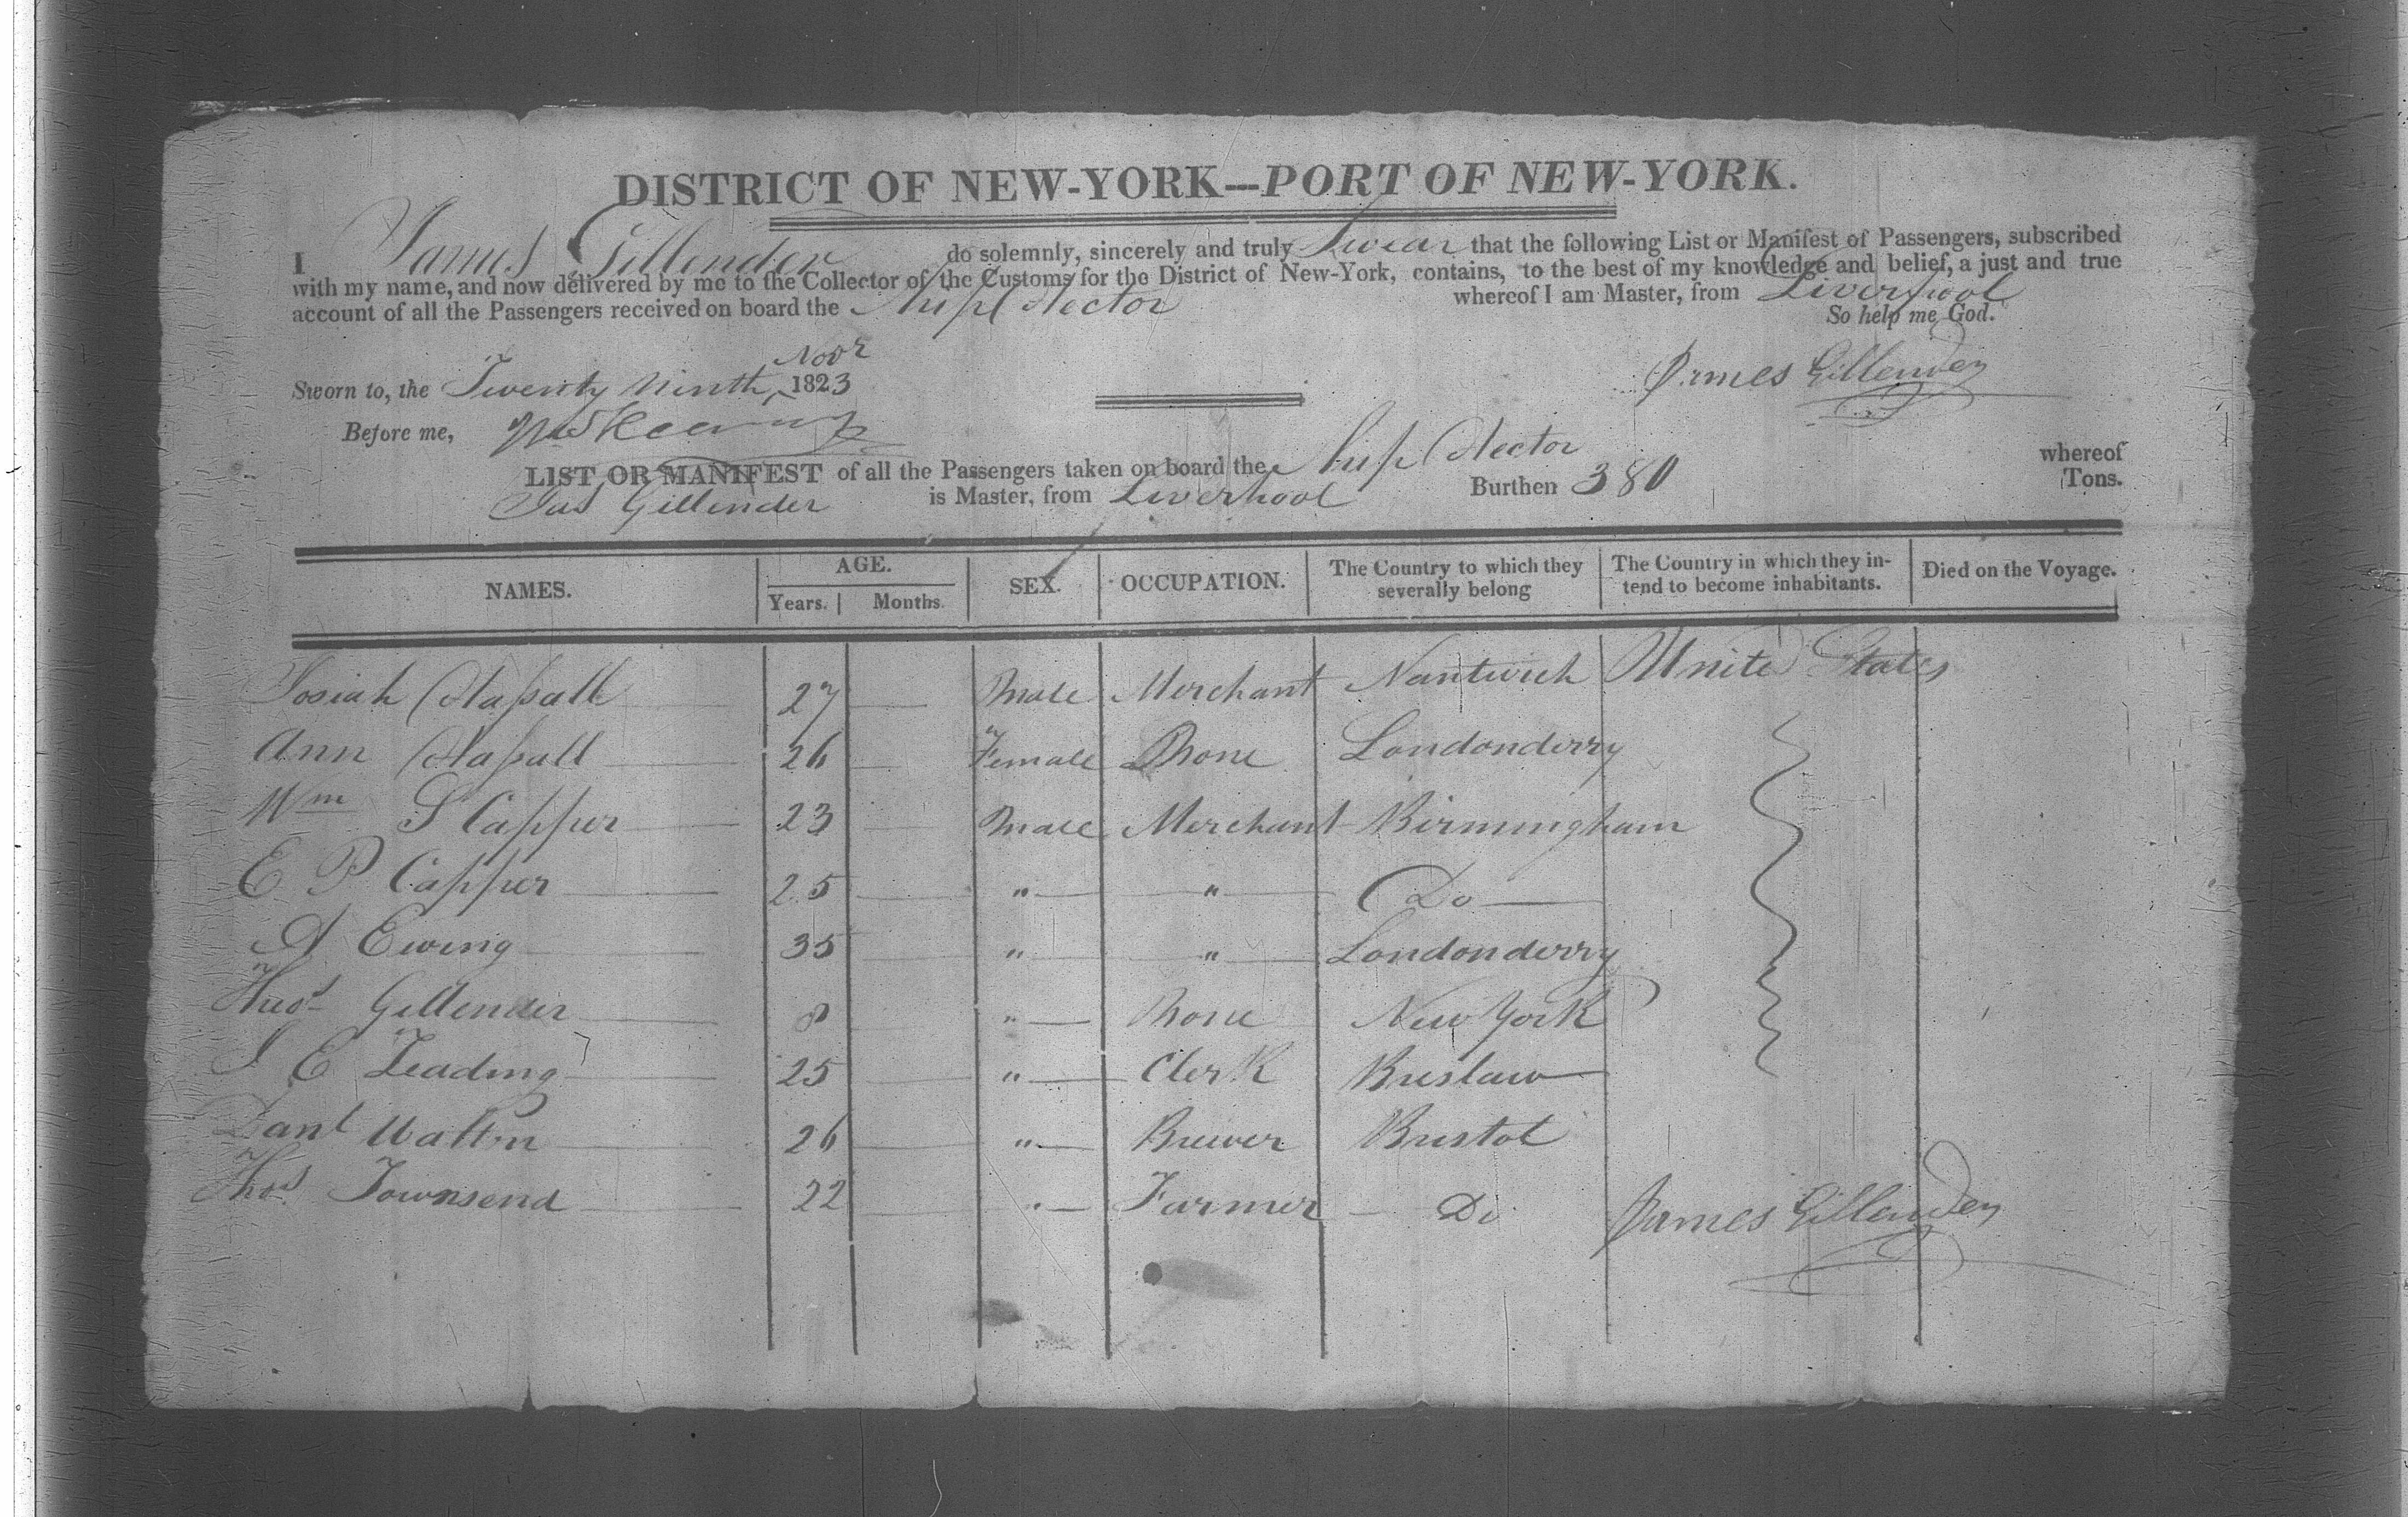 DISTRICT OF NEW-YORK---PORT OF NEW-YORK.
I James Gillender do solemnly, sincerely and truly Swear that the following List or Manifest of Passengers, subscribed
with my name, and now delivered by me to the Collector of the Customs for the District of New-York, contains, to the best of my knowledge and belief, a just and true
account of all the Passengers received on board the Ship Hector whereof I am Master, from Liverpool
So help me God.
Sworn to, the Twenty Ninth Novr 1823
James Gillender
Before me,
LIST OR MANIFEST of all the Passengers taken on board the Ship Hector whereof
Jas Gillender is Master, from Liverpool Burthen 380 Tons.
NAMES. AGE. SEX. OCCUPATION. The Country to which they severally belong The Country in which they in-tend to become inhabitants. Died on the Voyage.
Years. Months.
Josiah Hassall 27 Male Merchant Nantwich United States
Ann Hassall 26 Female None Londonderry
Wm S Capper 23 Male Merchant Birmingham
E P Capper 25 " " Do
A Ewing 35 " " Londonderry
Thos Gillender 8 " None New York
J E Leading 25 " Clerk Breslaw
Danl Walton 26 " Brewer Bristol
Thos Townsend 22 " Farmer Do
James Gillender